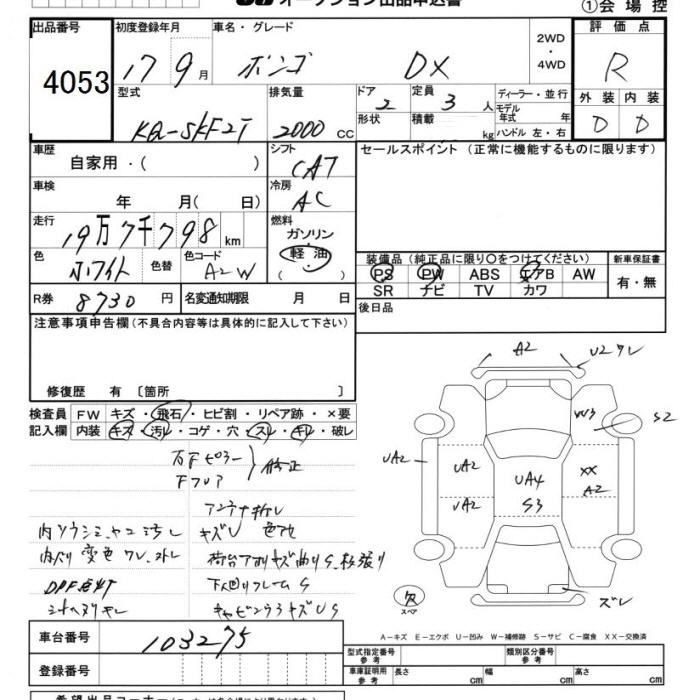 オークション出品申込書
①会場控
出品番号
4053
初度登録年月
17 9月
車名・グレード
ボンゴ DX
2WD
・
4WD
評価点
R
型式
KQ-SKF2T
排気量
2000 CC
ドア
2
定員
3 人
ディーラー・並行
モデル年式 年
形状
積載
kg
ハンドル 左・右
外装
D
内装
D
車歴
自家用・( )
シフト
CAT
セールスポイント (正常に機能するものに限ります)
車検
年 月( 日)
冷房
AC
走行
19万7千798 km
燃料
ガソリン
軽油
( )
色
ホワイト
色替
色コード
A2W
装備品 (純正品に限り○をつけてください)
新車保証書
PS PW ABS エアB AW
SR ナビ TV カワ
有・無
R券
8730 円
名変通知期限 月 日
後日品
注意事項申告欄 (不具合内容等は具体的に記入して下さい)
修復歴 有 〔箇所 〕
検査員
記入欄
FW キズ・飛石・ヒビ割・リペア跡・×要
内装 キズ・汚レ・コゲ・穴・スレ・キレ・破レ
修正
アンテナ折レ
キズU 色アセ
DPF点灯
下回りフレームS
A2
U2ワレ
W3
S2
UA2
UA2
UA2
UA4
S3
XX
A2
スペア
ズレ
A－キズ E－エクボ U－凹み W－補修跡 S－サビ C－腐食 XX－交換済
車台番号
103275
登録番号
型式指定番号
参考
類別区分番号
参考
車庫証明用
参考
長さ cm
幅 cm
高さ cm